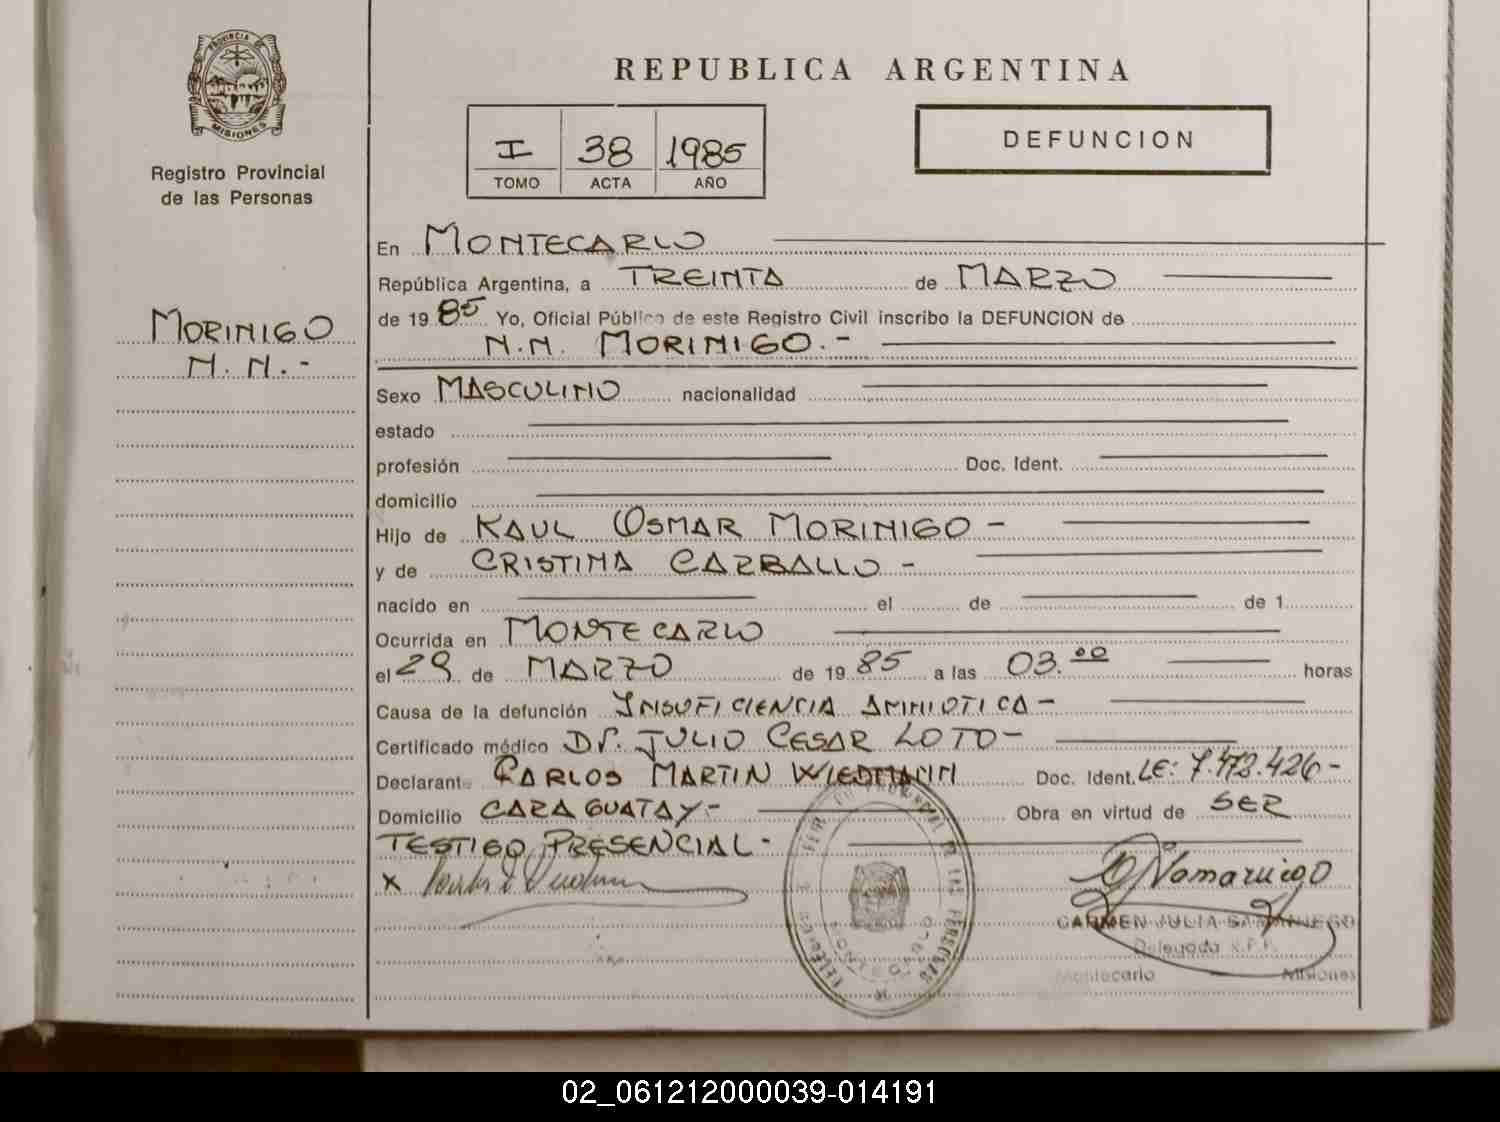 PROVINCIA DE
MISIONES
Registro Provincial
de las Personas
MORINIGO
N. N. -
REPUBLICA ARGENTINA
I 38 1985
TOMO ACTA AÑO
DEFUNCION
En MONTECARLO
República Argentina, a TREINTA de MARZO
de 1985 Yo, Oficial Público de este Registro Civil inscribo la DEFUNCION de
N.N. MORINIGO. -
Sexo MASCULINO nacionalidad
estado
profesión Doc. Ident.
domicilio
Hijo de RAUL OSMAR MORINIGO -
y de CRISTINA CARBALLO -
nacido en el de de 1
Ocurrida en MONTECARLO
el 29 de MARZO de 1985 a las 03.00 horas
Causa de la defunción INSUFICIENCIA AMNIOTICA -
Certificado médico Dr. JULIO CESAR LOTO -
Declarante CARLOS MARTIN WIEDMANN Doc. Ident. LE: 7.473.426 -
Domicilio CARAGUATAY - Obra en virtud de SER
TESTIGO PRESENCIAL -
x
CARMEN JULIA SAMANIEGO
Delegada R.P.P.
Montecarlo Misiones
DE LAS PERSONAS
MONTECARLO
02_061212000039-014191